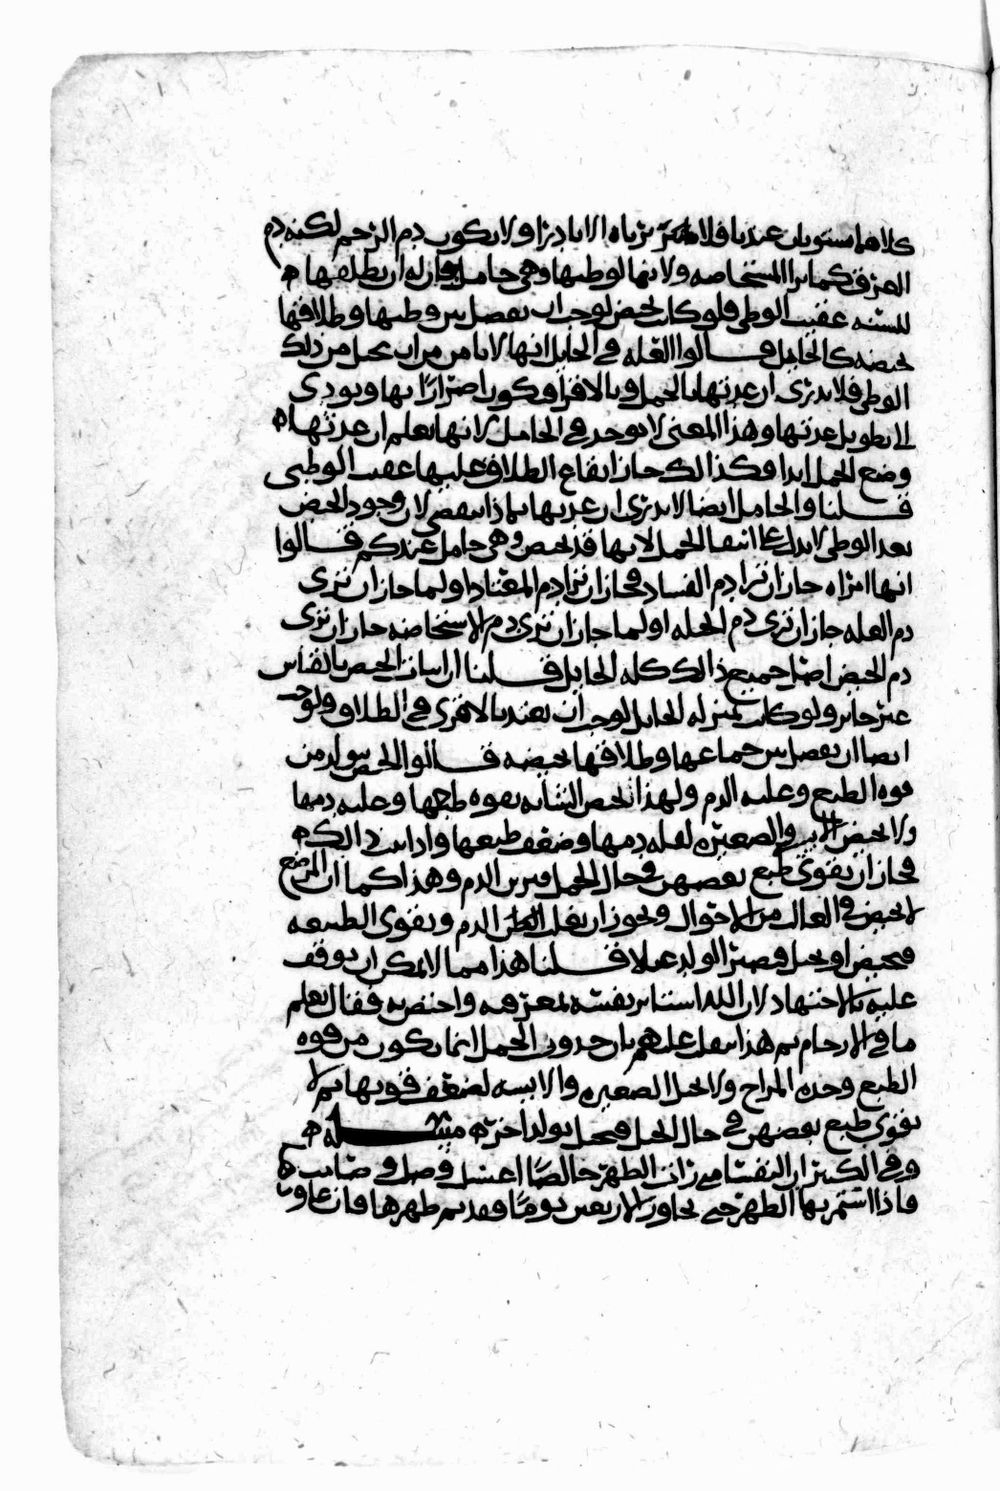 كلاهما مستويان عندنا فلا تراه الا نادرا ولا يكون دم الرحم لكنه دم
العرق كما ترا المستحاضه ولانها لو وطيها وهي حامل جاز له ان يطلقها
للسنه عقيب الوطي فلو كانت تحيض لوجب ان يفصل بين وطيها وطلاقها
بحيضه كالحايل قالوا العله في الحايل انها لا يامن من ان تحبل من ذلك
الوطي فلا يدرى ان عدتها بالحمل او بالاقرا فيكون اضرارا بها ويودي
الى تطويل عدتها وهذا المعنى لا يوجد في الحامل لانها تعلم ان عدتها
وضع الحمل ابدا فكذالك جاز ايقاع الطلاق عليها عقيب الوطي
قلنا والحامل ايضا لا يدرى ان عدتها بماذا تنقضي لان وجود الحيض
بعد الوطي لا يدل على انتفا الحمل لانها قد تحيض وهي حامل عندكم قالوا
انها امراه جاز ان ترا دم الفساد فجاز ان ترا دم المعتاد او لما جاز ان ترى
دم العله جاز ان ترى دم الجبله او لما جاز ان ترى دم الاستحاضه جاز ان ترى
دم الحيض اصله جميع ذالك كله الحايل قلنا ان اثبات الحيض بالقياس
غير جايز ولو كانت بمنزله الحايل لوجب ان تعتد بالاقرى في الطلاق ولوجب
ايضا ان يفصل بين جماعها وطلاقها بحيضه قالوا الحيض يتولد من
قوه الطبع وغلبه الدم ولهذا تحيض الشابه بقوه طبعها وغلبه دمها
ولا تحيض الايسه والصغيره لقله دمها وضعف طبعها واذا ثبت ذالك
فجاز ان يقوى طبع بعضهن في حال الحمل فيرين الدم وهذا كما ان المرضع
لا تحيض في الغالب من الاحوال ويجوز ان يغلب الدم ويقوى الطبيعه
فتحيض او تحبل فيصير الولد غيلا قلنا هذا مما لا يمكن ان يوقف
عليه بالاجتهاد لان الله استاثر بنفسه بمعرفته واختص به فقال يعلم
ما في الارحام ثم هذا ينقلب عليهم بان حدوث الحمل انما يكون من قوه
الطبع وحده المزاج ولا تحبل الصغيره والايسه لضعف قوتها ثم لا
يقوى طبع بعضهن في حال الحبل فتحبل بولد اخر مسله
وفي الكبير ان النفسا متى رات الطهر خالصا اغتسل وصل وصامت
فاذا استمر بها الطهر حتى تجاوز الاربعين يوما فقد تم طهرها فان عاود